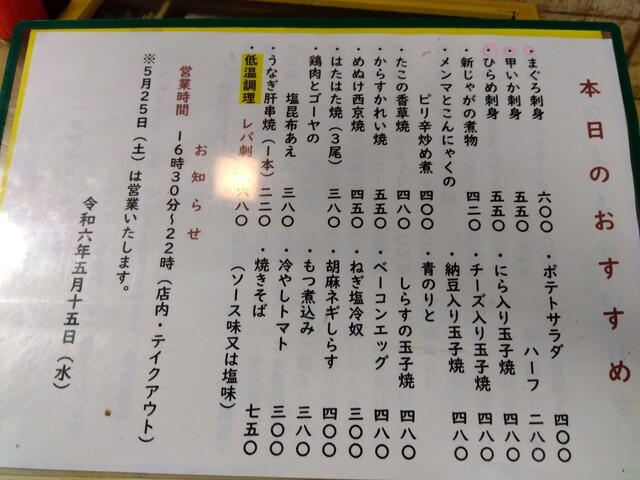 本日のおすすめ
・まぐろ刺身 六〇〇
・甲いか刺身 五五〇
・ひらめ刺身 五五〇
・新じゃがの煮物 四二〇
・メンマとこんにゃくの
ピリ辛炒め煮 四〇〇
・たこの香草焼 四八〇
・からすかれい焼 五五〇
・めぬけ西京焼 四五〇
・はたはた焼(3尾) 三八〇
・鶏肉とゴーヤの
塩昆布あえ 三八〇
・うなぎ肝串焼(1本) 二二〇
・低温調理 レバ刺 六八〇
・ポテトサラダ 四〇〇
ハーフ 二八〇
・にら入り玉子焼 四八〇
・チーズ入り玉子焼 四八〇
・納豆入り玉子焼 四八〇
・青のりと
しらすの玉子焼 四八〇
・ベーコンエッグ 四八〇
・ねぎ塩冷奴 三〇〇
・胡麻ネギしらす 四〇〇
・もつ煮込み 三八〇
・冷やしトマト 三〇〇
・焼きそば 七五〇
(ソース味又は塩味)
お知らせ
営業時間 16時30分~22時(店内・テイクアウト)
※5月25日(土)は営業いたします。
令和六年五月十五日(水)